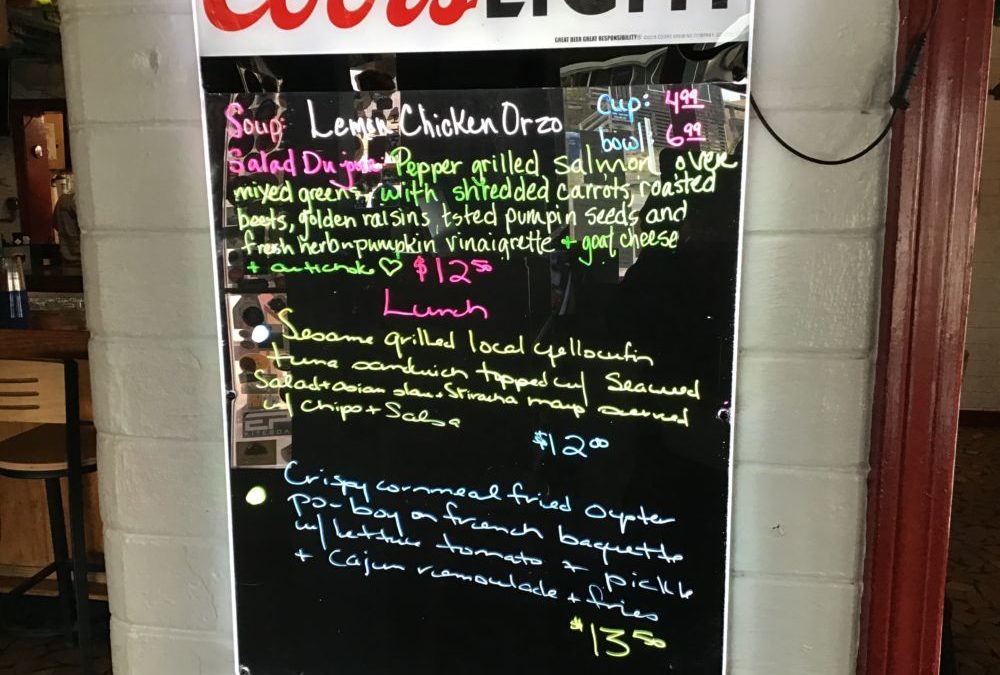 Coors LIGHT
GREAT BEER GREAT RESPONSIBILITY®
Soup: Lemon Chicken Orzo
Cup: 4.99
bowl: 6.99
Salad Du jour: Pepper grilled salmon over
mixed greens, with shredded carrots, roasted
beets, golden raisins, tsted pumpin seeds and
fresh herb n pumpkin vinaigrette + goat cheese
+ artichoke ♡ $12.50
Lunch
Sesame grilled local yellowfin
tuna sandwich topped w/ Seaweed
Salad + asian slaw + Sriracha mayo served
w/ chips + Salsa
$12.00
Crispy cornmeal fried oyster
po-boy on french baguette
w/ lettuce tomato + pickle
+ cajun remoulade + fries
$13.50